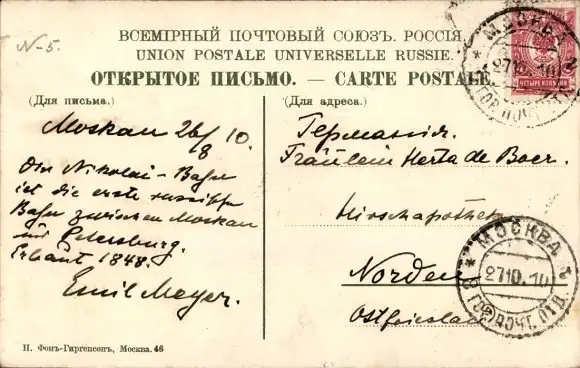 N-5.
ВСЕМІРНЫЙ ПОЧТОВЫЙ СОЮЗЪ. РОССІЯ.
UNION POSTALE UNIVERSELLE RUSSIE.
ОТКРЫТОЕ ПИСЬМО. — CARTE POSTALE.
(Для письма.)
Moskau 26/8 10.
Die Nikolai-Bahn
ist die erste russische
Bahn zwischen Moskau
und Petersburg.
Erbaut 1848.
Emil Meyer.
(Для адреса.)
Германія.
Fräulein Herta de Boer.
Hirschapotheke
Norden
Ostfriesland
МОСКВА
27 10. 10
ГОР. ПОЧТ.
ЧЕТЫРЕ КОП.
МОСКВА
27 10. 10
ГОР. ПОЧТ. ОТД.
П. Фонъ-Гиргенсонъ, Москва. 46